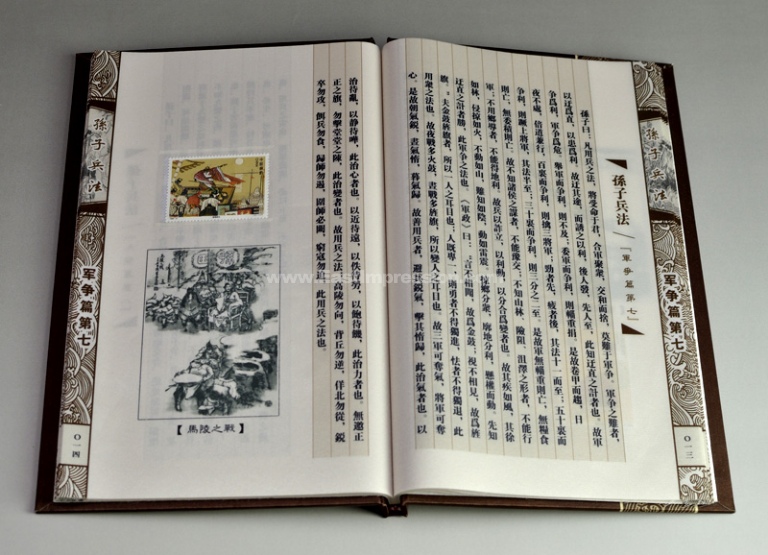 孫子兵法
軍争篇第七
〇一三
孫子兵法 「軍争篇第七」
孫子曰：凡用兵之法，將受命于君，合軍聚衆，交和而捨，莫難于軍争。軍争之難者，
以迂爲直，以患爲利。故迂其途，而誘之以利，後人發，先人至，此知迂直之計者也。故軍
争爲利，軍争爲危。舉軍而争利，則不及；委軍而争利，則輜重捐。是故卷甲而趨，日
夜不處，倍道兼行，百裏而争利，則擒三將軍；勁者先，疲者後，其法十一而至。五十裏而
争利，則蹶上將軍，其法半至；三十裏而争利，則三分之二至。是故軍無輜重則亡，無糧食
則亡，無委積則亡。故不知諸侯之謀者，不能豫交；不知山林、險阻、沮澤之形者，不能行
軍；不用鄉導者，不能得地利。故兵以詐立，以利動，以分合爲變者也。故其疾如風，其徐
如林，侵掠如火，不動如山，難知如陰，動如雷震。掠鄉分衆，廓地分利，懸權而動。先知
迂直之計者勝，此軍争之法也。《軍政》曰：“言不相聞，故爲金鼓；視不相見，故爲旌
旗。”夫金鼓旌旗者，所以一人之耳目也。人既專一，則勇者不得獨進，怯者不得獨退，此
用衆之法也。故夜戰多火鼓，晝戰多旌旗，所以變人之耳目也。故三軍可奪氣，將軍可奪
心。是故朝氣銳，晝氣惰，暮氣歸。故善用兵者，避其銳氣，擊其惰歸，此治氣者也。以
治待亂，以静待嘩，此治心者也。以近待遠，以佚待勞，以飽待饑，此治力者也。無邀正
正之旗，勿擊堂堂之陳，此治變者也。故用兵之法，高陵勿向，背丘勿逆，佯北勿從，銳
卒勿攻，餌兵勿食，歸師勿遏，圍師必闕，窮寇勿迫，此用兵之法也。
【馬陵之戰】
孫子兵法
军争篇第七
〇一四